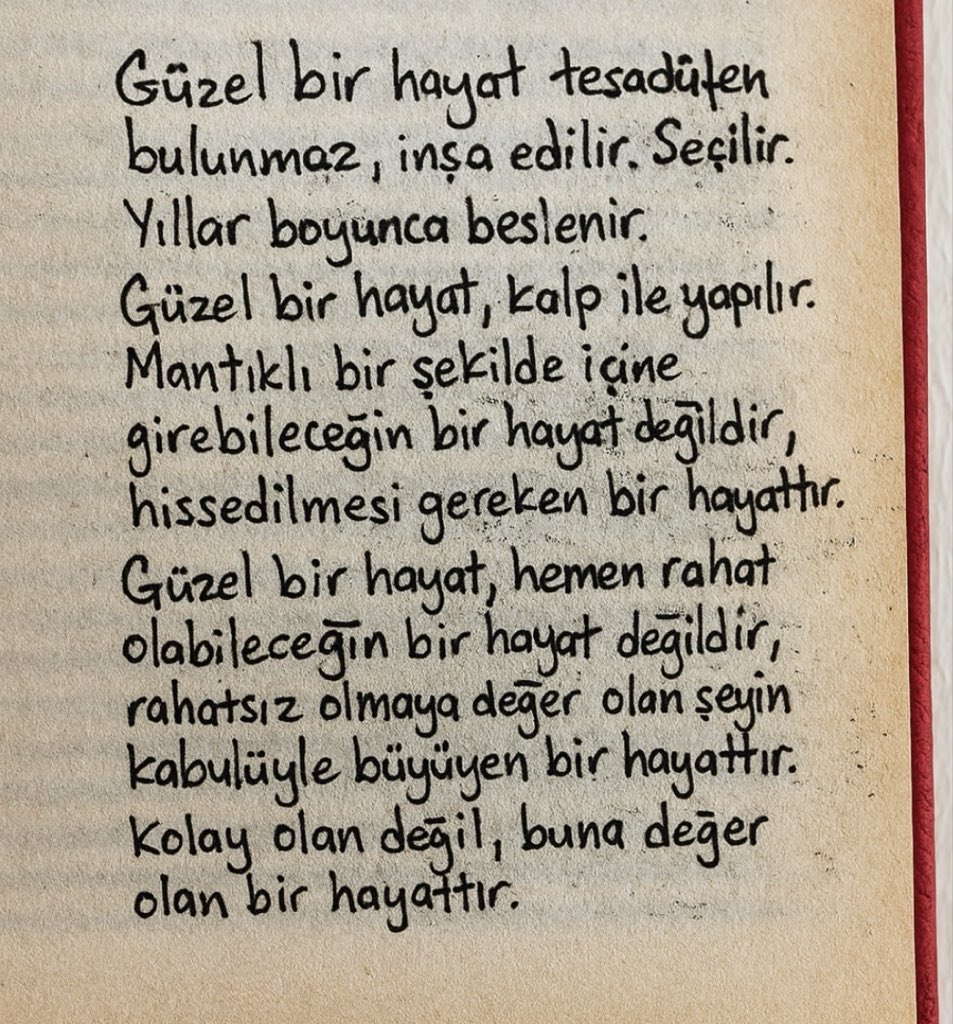 Güzel bir hayat tesadüfen
bulunmaz, inşa edilir. Seçilir.
Yıllar boyunca beslenir.
Güzel bir hayat, kalp ile yapılır.
Mantıklı bir şekilde içine
girebileceğin bir hayat değildir,
hissedilmesi gereken bir hayattır.
Güzel bir hayat, hemen rahat
olabileceğin bir hayat değildir,
rahatsız olmaya değer olan şeyin
kabulüyle büyüyen bir hayattır.
Kolay olan değil, buna değer
olan bir hayattır.